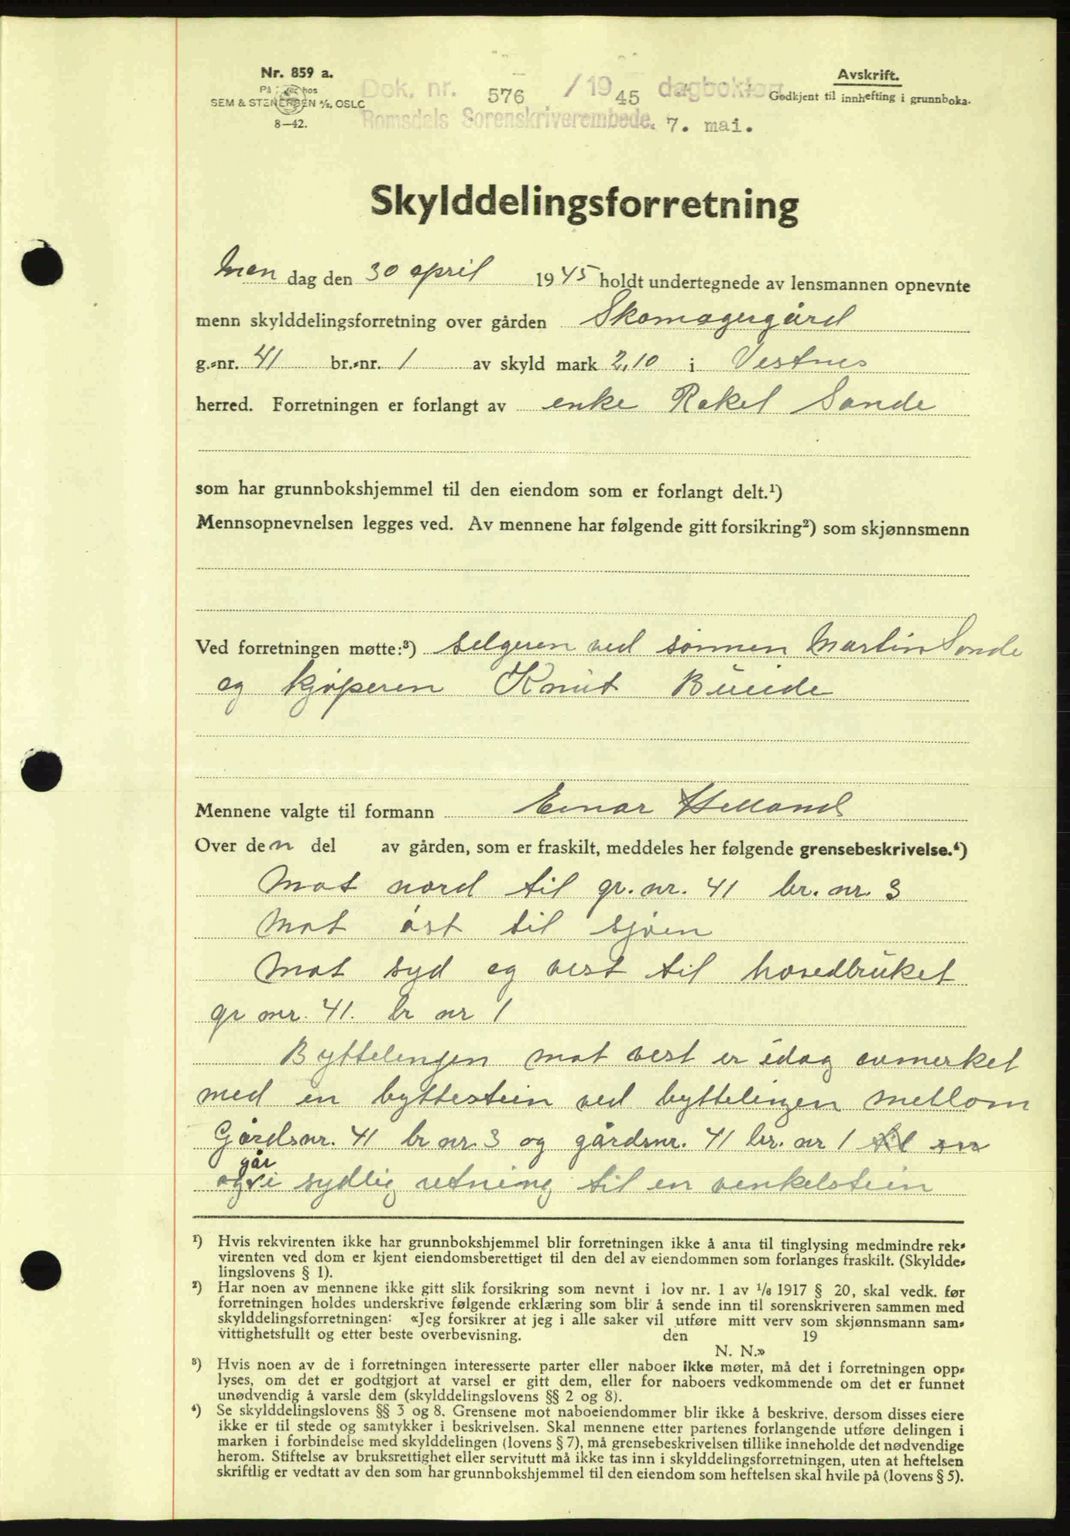 Nr. 859 a.
På lager hos
SEM & STENERSEN A/S, OSLO
8—42.
Dok. nr. 576 / 1945 dagboktatt
Romsdals Sorenskriverembede. 7. mai.
Avskrift.
Godkjent til innhefting i grunnboka.
Skylddelingsforretning
Man dag den 30 april 1945 holdt undertegnede av lensmannen opnevnte
menn skylddelingsforretning over gården Skomagergård
g.-nr. 41 br.-nr. 1 av skyld mark 2,10 i Vestnes
herred. Forretningen er forlangt av enke Rakel Sande
som har grunnbokshjemmel til den eiendom som er forlangt delt.¹)
Mennsopnevnelsen legges ved. Av mennene har følgende gitt forsikring²) som skjønnsmenn
Ved forretningen møtte:³) selgeren ved sønnen Martin Sande
og kjøperen Knut
Mennene valgte til formann Einar Helland
Over den del av gården, som er fraskilt, meddeles her følgende grensebeskrivelse.⁴)
Mot nord til gr. nr. 41 br. nr. 3
Mot øst til sjøen
Mot syd og vest til hovedbruket
gr nr. 41. br nr 1
Byttelingen mot vest er idag avmerket
med en byttestein ved byttelingen mellom
Gårdsnr. 41 br nr. 3 og gårdsnr. 41 br. nr 1
og går i sydlig retning til en venkelstein
¹) Hvis rekvirenten ikke har grunnbokshjemmel blir forretningen ikke å anta til tinglysing medmindre rek-
virenten ved dom er kjent eiendomsberettiget til den del av eiendommen som forlanges fraskilt. (Skyldde-
lingslovens § 1).
²) Har noen av mennene ikke gitt slik forsikring som nevnt i lov nr. 1 av 1/6 1917 § 20, skal vedk. før
forretningen holdes underskrive følgende erklæring som blir å sende inn til sorenskriveren sammen med
skylddelingsforretningen: «Jeg forsikrer at jeg i alle saker vil utføre mitt verv som skjønnsmann sam-
vittighetsfullt og etter beste overbevisning. den 19
N. N.»
³) Hvis noen av de i forretningen interesserte parter eller naboer ikke møter, må det i forretningen opp-
lyses, om det er godtgjort at varsel er gitt dem, eller for naboers vedkommende om det er funnet
unødvendig å varsle dem (skylddelingslovens §§ 2 og 8).
⁴) Se skylddelingslovens §§ 3 og 8. Grensene mot naboeiendommer blir ikke å beskrive, dersom disses eiere
ikke er til stede og samtykker i beskrivelsen. Skal mennene etter partenes forlangende utføre delingen i
marken i forbindelse med skylddelingen (lovens § 7), må grensebeskrivelsen tillike inneholde det nødvendige
herom. Stiftelse av bruksrettighet eller servitutt må ikke tas inn i skylddelingsforretningen, uten at heftelsen
skriftlig er vedtatt av den som har grunnbokshjemmel til den eiendom som heftelsen skal hvile på (lovens § 5).